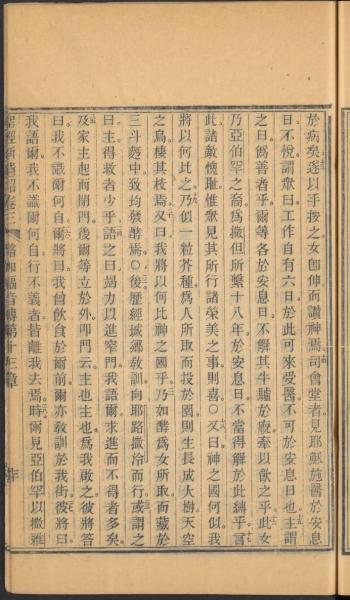 於病矣遂以手按之女卽伸而讚神焉司會堂者見耶穌施醫於安息
日不悅謂衆曰工作自有六日於此可來受醫不可於安息日也主謂
之曰僞善者乎爾等各於安息日不解其牛驢於廐牽以飲之乎此女
乃亞伯罕之裔爲撒但所繫十八年於安息日不當得解於此縛乎言
此諸敵愧耻惟衆見其所行諸榮美之事則喜○又曰神之國何似我
將以何比之乃似一粒芥種爲人所取而投於園則生長成大樹天空
之鳥棲其枝焉又曰我將以何比神之國乎乃如酵爲女所取而藏於
三斗麪中致均發酵焉○後歷經城鄉敎訓向耶路撒冷而行或謂之
曰主得救者少乎語之曰竭力以進窄門我語爾求進而不得者多矣
及家主起而閉門後爾等立於外叩門云主也主也爲我啟之彼將答
曰我不識爾何自爾將曰我曾飲食於爾前爾亦敎訓於我街彼將曰
我語爾我不識爾何自行不義者皆離我去焉時爾見亞伯罕以撒雅
聖經新遺詔卷三 路加福音傳第十三章